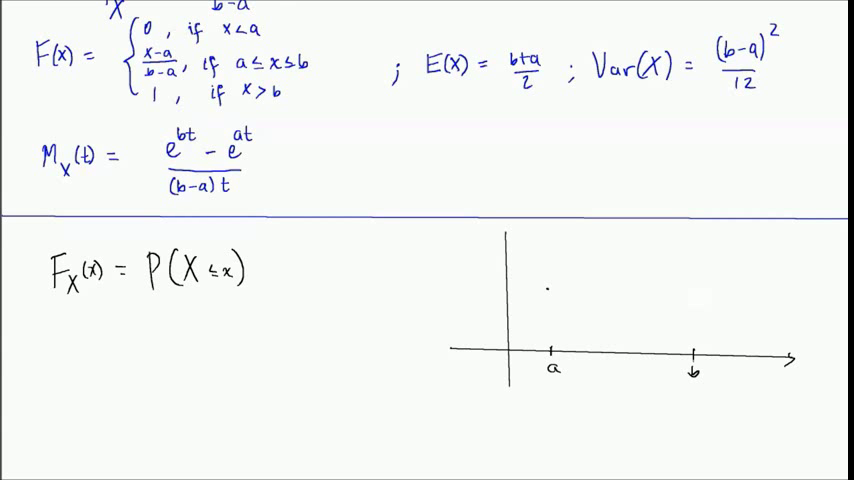 X b-a
F(x) = { 0 , if x<a
x-a/b-a , if a≤x≤b ; E(X) = b+a/2 ; Var(X) = (b-a)²/12
1 , if x>b
M_X(t) = e^{bt} - e^{at} / (b-a)t
F_X(x) = P(X ≤ x)
a b